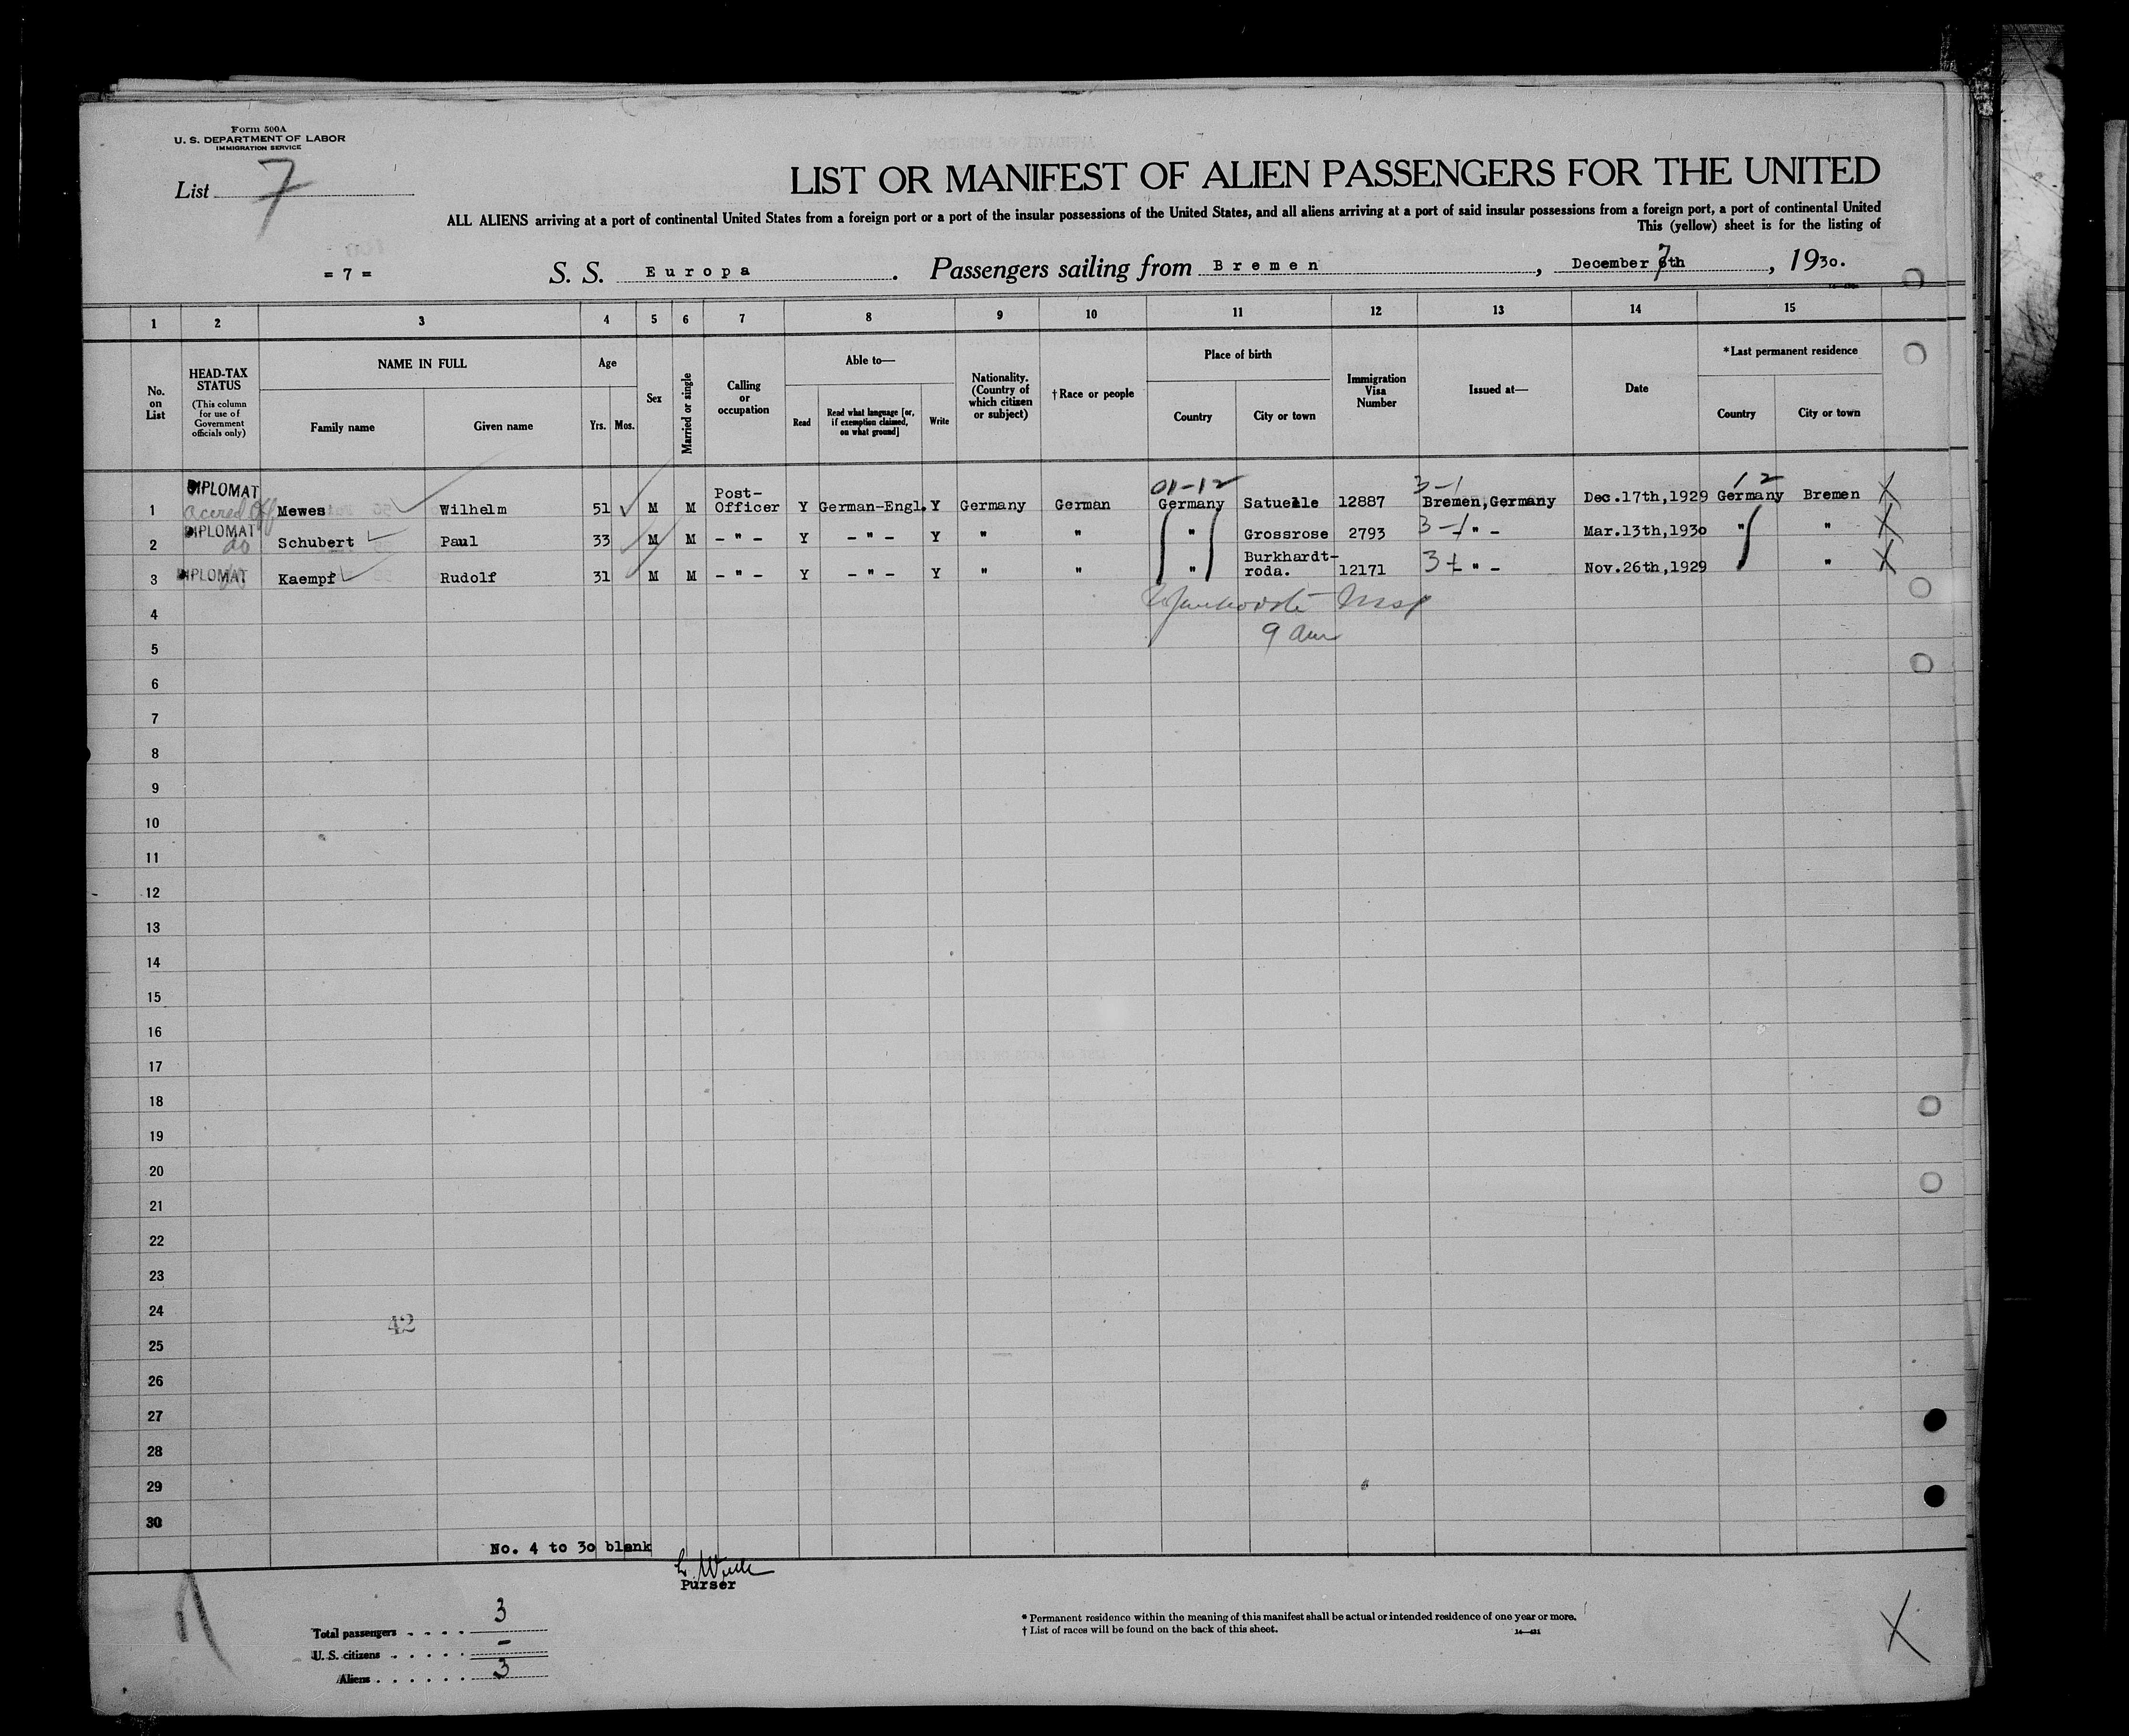 Form 500A
U. S. DEPARTMENT OF LABOR
IMMIGRATION SERVICE
List 7
LIST OR MANIFEST OF ALIEN PASSENGERS FOR THE UNITED
ALL ALIENS arriving at a port of continental United States from a foreign port or a port of the insular possessions of the United States, and all aliens arriving at a port of said insular possessions from a foreign port, a port of continental United
This (yellow) sheet is for the listing of
= 7 = S. S. Europa. Passengers sailing from Bremen, December 7th, 1930.
1 2 3 4 5 6 7 8 9 10 11 12 13 14 15
No. on List
HEAD-TAX STATUS
(This column for use of Government officials only)
NAME IN FULL
Family name Given name
Age
Yrs. Mos.
Sex
Married or single
Calling or occupation
Able to—
Read
Read what language [or, if exemption claimed, on what ground]
Write
Nationality. (Country of which citizen or subject)
†Race or people
Place of birth
Country City or town
Immigration Visa Number
Issued at—
Date
*Last permanent residence
Country City or town
01-12 3-1 12
1 DIPLOMAT Mewes Wilhelm 51 M M Post-Officer Y German-Engl. Y Germany German Germany Satuelle 12887 Bremen,Germany Dec.17th,1929 Germany Bremen X
2 DIPLOMAT do Schubert Paul 33 M M - " - Y - " - Y " " " Grossrose 2793 3-1 " - Mar.13th,1930 " " X
3 DIPLOMAT do Kaempf Rudolf 31 M M - " - Y - " - Y " " " Burkhardt-roda. 12171 3 - " - Nov.26th,1929 " X
4
9 am
5
6
7
8
9
10
11
12
13
14
15
16
17
18
19
20
21
22
23
24
42
25
26
27
28
29
30
No. 4 to 30 blank
Purser
Total passengers . . . . 3
U. S. citizens . . . . . –
Aliens . . . . . . 3
* Permanent residence within the meaning of this manifest shall be actual or intended residence of one year or more.
† List of races will be found on the back of this sheet.
X